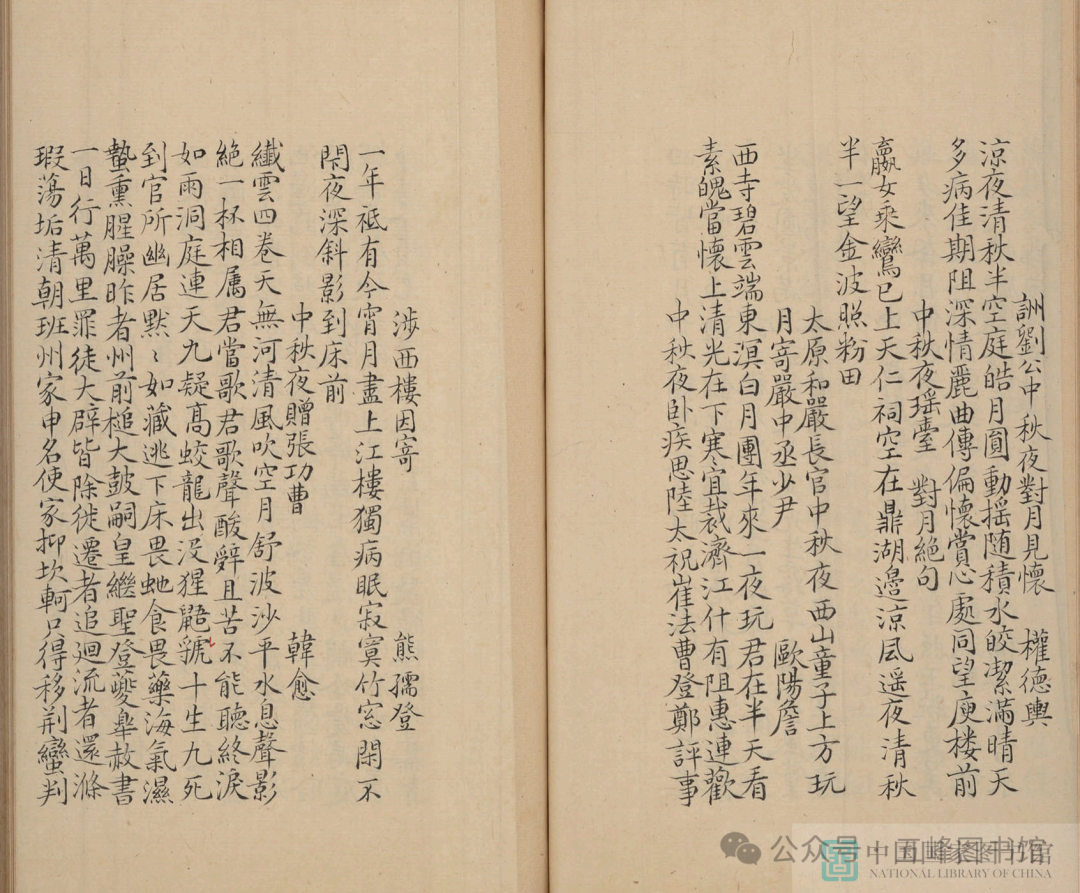 詶劉公中秋夜對月見懷　權德輿
涼夜清秋半空庭皓月圓動揺随積水皎潔滿晴天
多病佳期阻深情麗曲傳偏懷賞心處同望庾楼前
中秋夜瑶臺　對月絕句
嬴女乘鸞已上天仁祠空在鼎湖邉涼風遥夜清秋
半一望金波照粉田
太原和嚴長官中秋夜西山童子上方玩
月寄嚴中丞少尹　歐陽詹
西寺碧雲端東溟白月團年來一夜玩君在半天看
素魄當懷上清光在下寒宜裁濟江什有阻惠連歡
中秋夜卧疾思陸太祝崔法曹登鄭評事
渉西樓因寄　熊孺登
一年祗有今宵月盡上江樓獨病眠寂寞竹窓閑不
閉夜深斜影到床前
中秋夜贈張功曹　韓愈
纖雲四卷天無河清風吹空月舒波沙平水息聲影
絶一杯相属君當歌君歌聲酸辭且苦不能聽終淚
如雨洞庭連天九疑髙蛟龍出没猩鼯號十生九死
到官所幽居黙〻如藏逃下床畏虵食畏藥海氣濕
蟄熏腥臊昨者州前槌大鼓嗣皇繼聖登夔皋赦書
一日行萬里罪徒大辟皆除徙遷者追廻流者還滌
瑕蕩垢清朝班州家申名使家抑坎軻只得移荆蠻判
公众号·五峰图书馆
中国国家图书馆
NATIONAL LIBRARY OF CHINA